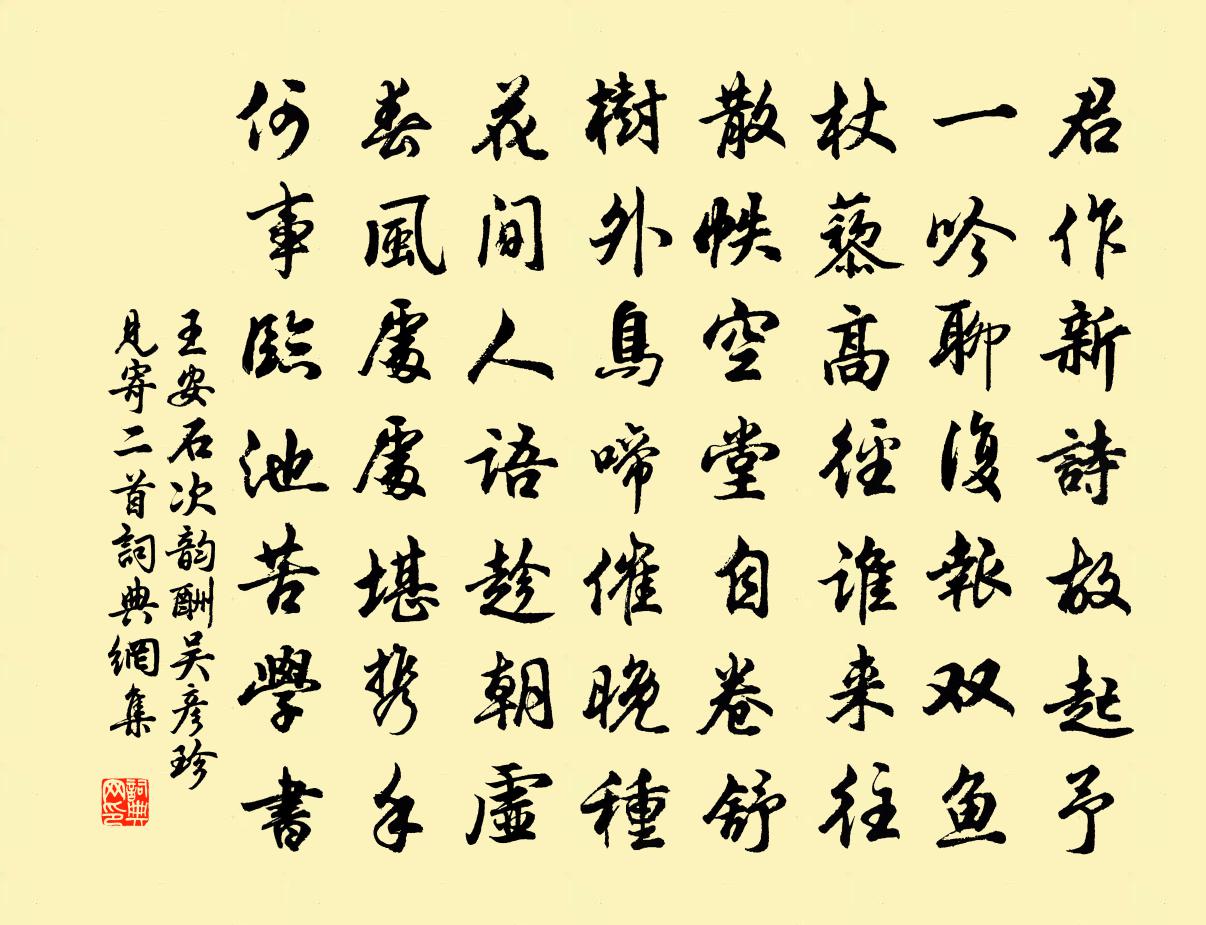 君作新詩故起予
一吟聊復報双魚
杖藜高徑誰来往
散帙空堂自卷舒
樹外鳥啼催晚種
花間人語趁朝虛
春風處處堪携手
何事臨池苦學書
王安石次韵酬吴彦珍
見寄二首詞典網集
詞典
网印